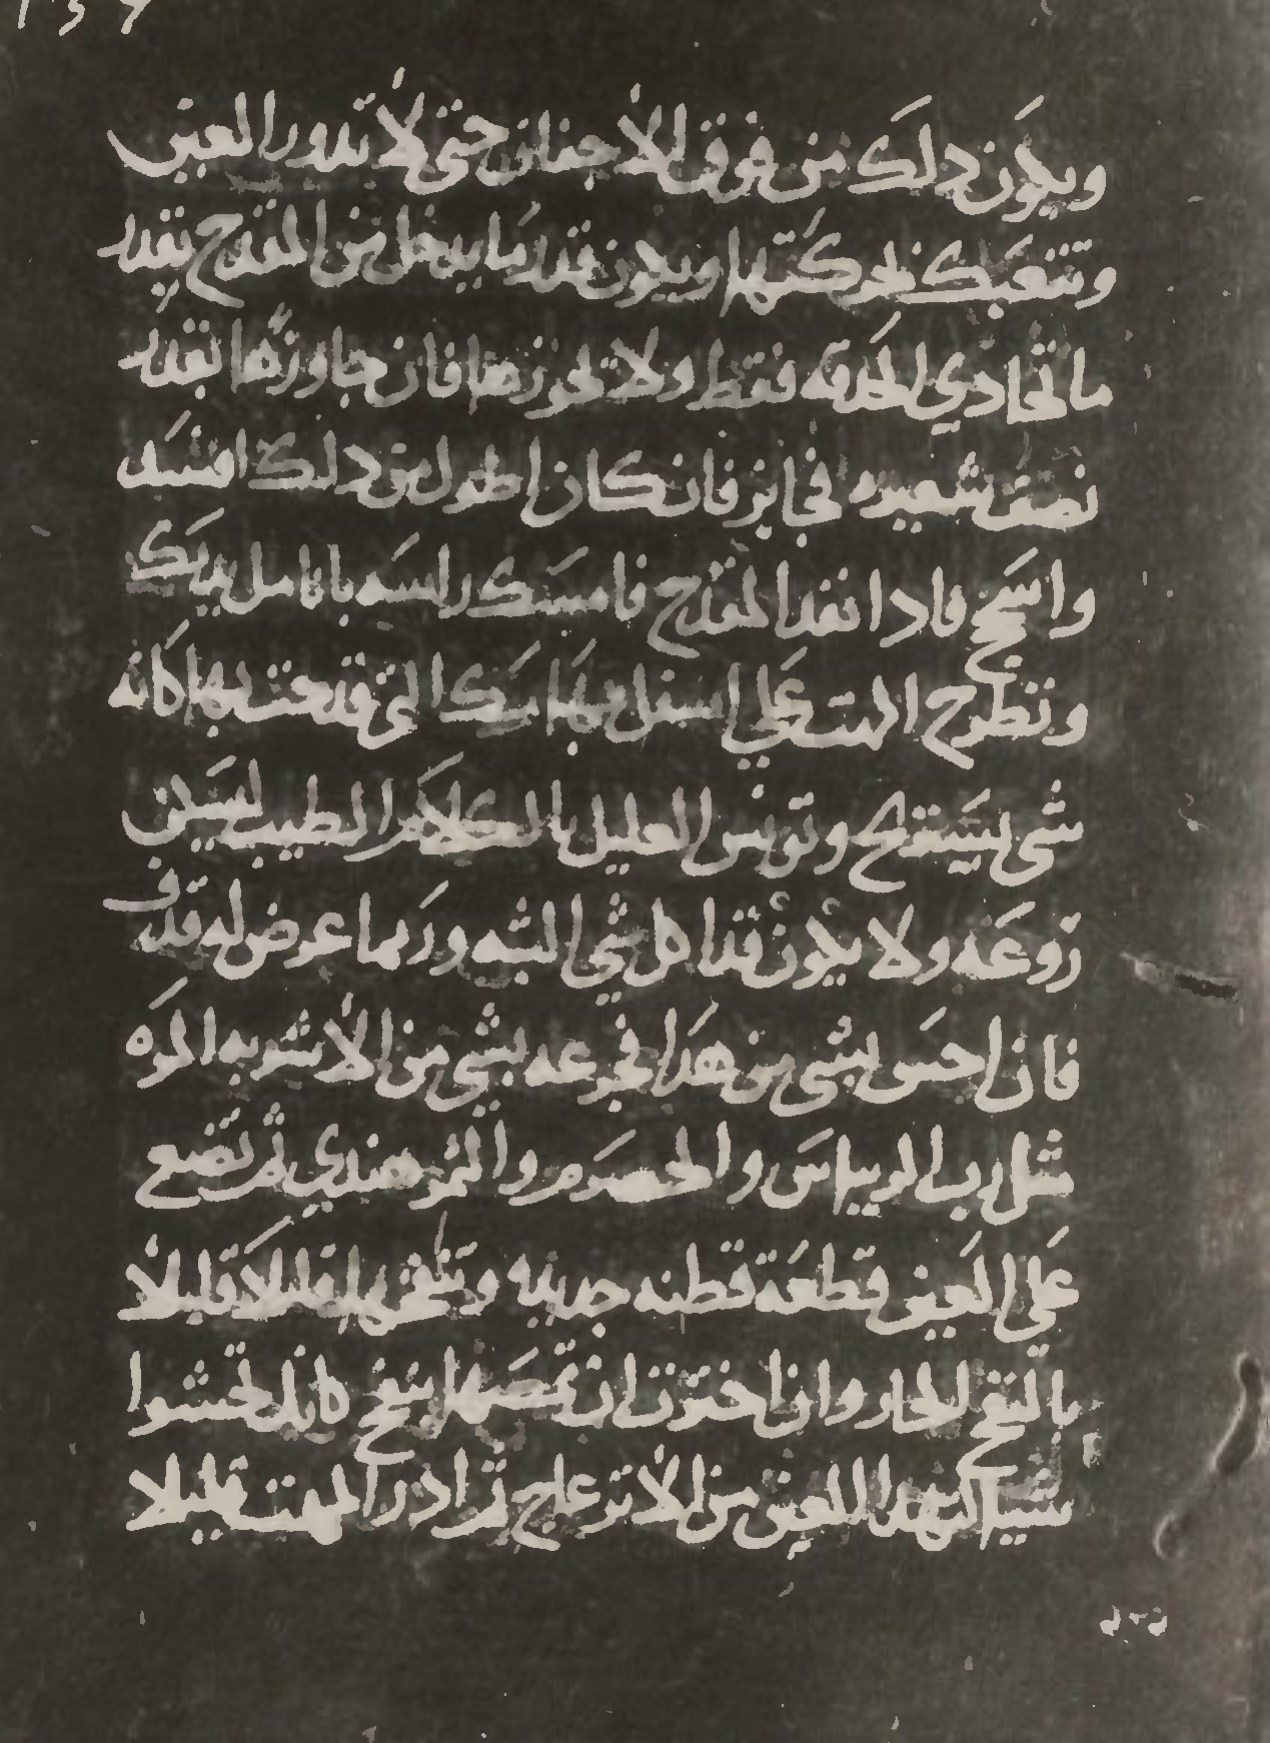 ويكون دلك من فوق الاجفان حتى لا تدور العين
وتتعبك بحركتها ويكون قدر ما يدخل من المقدح بقدر
ما تحادي الحدقه فقط ولا تحوزها فان جاوزها بقدر
نصف شعيره فجايز فان كان اطول من دلك افسد
واسحج فادا نفد المقدح فامسك راسه بانامل يدك
وتطرح المهت على اسفل ابهامك التي قدحت بها كانه
شي يستريح وتونس العليل بالكلام الطيب ليسكن
روعه ولا يكون قد اكل شي البته وربما عرض له قدف
فان احس بشي من هدا فجرعه بشي من الاشربه المزه
مثل رب الريباس والحصرم والتمر هندي ثم تضع
على العين قطعة قطنه جديده وتنفخها قليلا قليلا
بالنفخ الحار وان اخترت ان تمصها بفخ كانك تحشوا
شيا لتهدا العين من الا ثر علاج ثم ادر المهت قليلا